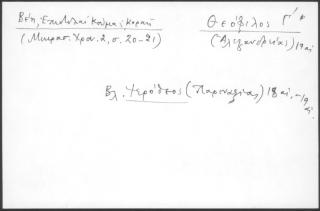 Βέη, Ἐπιστολαὶ Κοσμᾶ, Κοραῆ
(Μικρασ. Χρον. 2, σ. 20-21)
Θεόφιλος Γ′ *
(Ἀλεξανδρείας) 19 αἰ
Βλ. Ἱερόθεος (Παροναξίας) 18 αἰ. -19
αἰ.